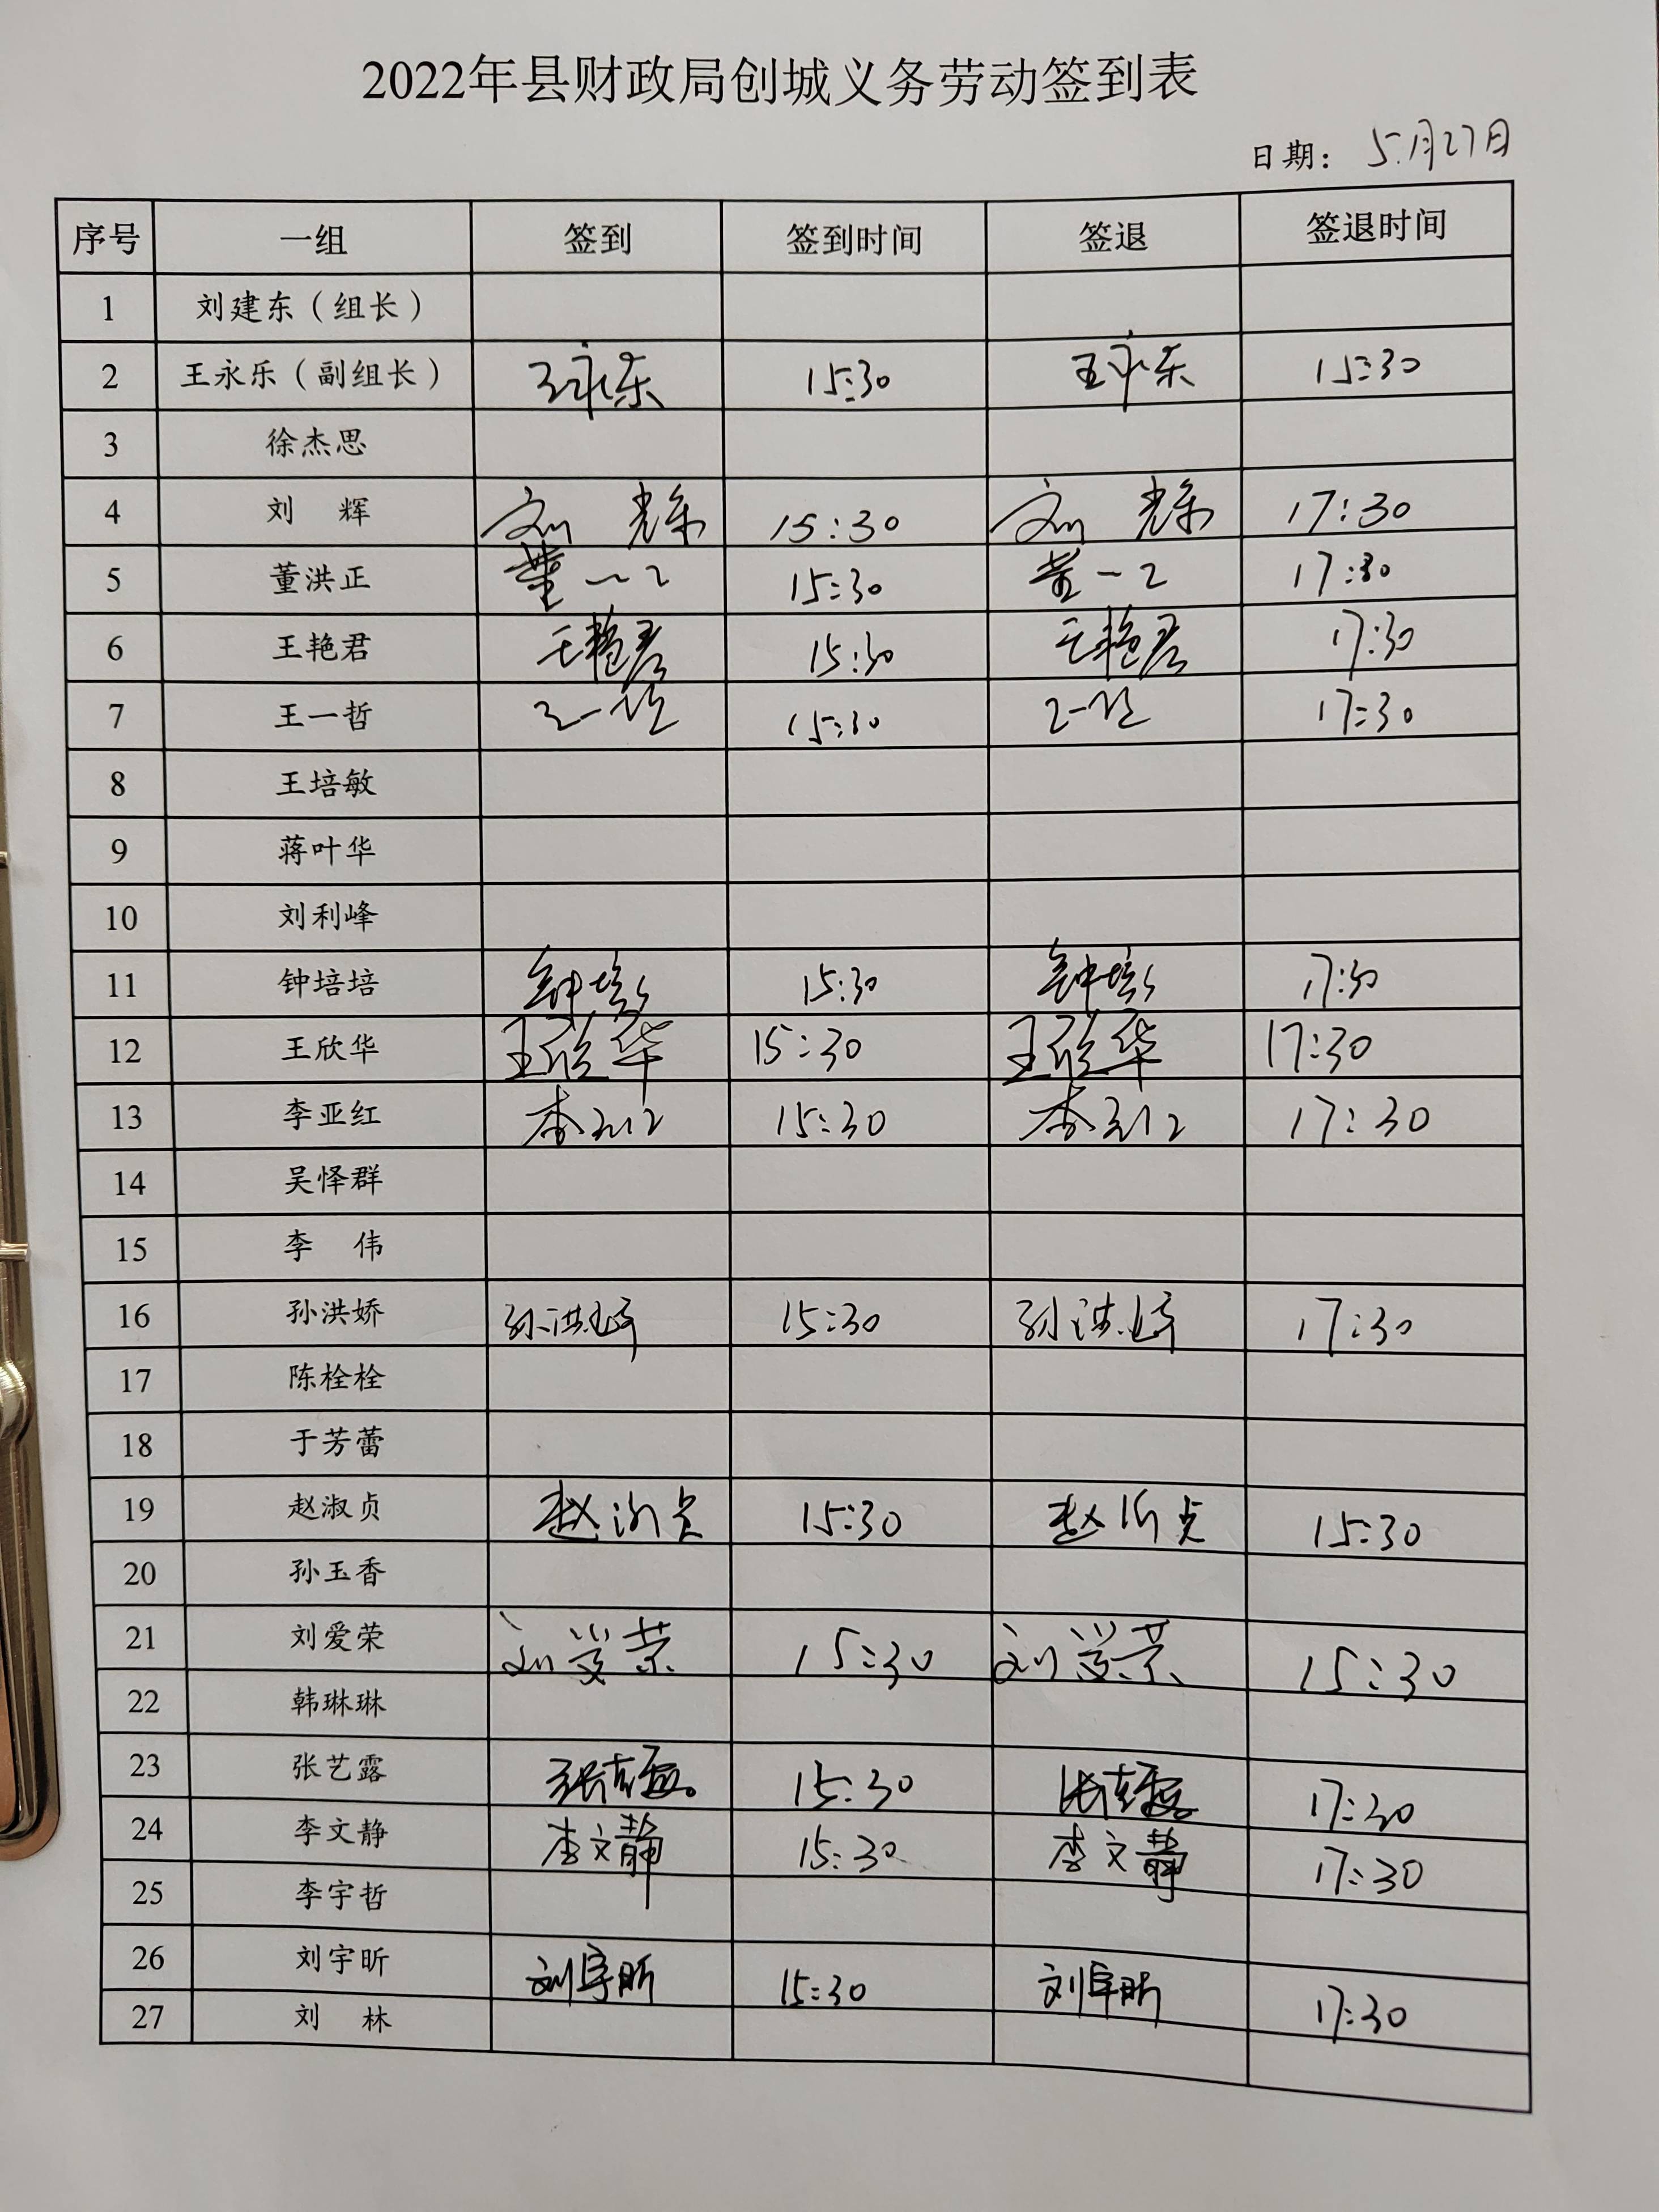 2022年县财政局创城义务劳动签到表
日期： 5月27日
序号 一组 签到 签到时间 签退 签退时间
1 刘建东（组长）
2 王永乐（副组长） 王永乐 15:30 王永乐 15:30
3 徐杰思
4 刘 辉 刘 辉 15:30 刘 辉 17:30
5 董洪正 董 15:30 董 17:30
6 王艳君 王艳君 15:30 王艳君 17:30
7 王一哲 王一哲 15:30 王一哲 17:30
8 王培敏
9 蒋叶华
10 刘利峰
11 钟培培 钟培培 15:30 钟培培 17:30
12 王欣华 王欣华 15:30 王欣华 17:30
13 李亚红 李亚红 15:30 李亚红 17:30
14 吴怿群
15 李 伟
16 孙洪娇 孙洪娇 15:30 孙洪娇 17:30
17 陈栓栓
18 于芳蕾
19 赵淑贞 赵淑贞 15:30 赵淑贞 15:30
20 孙玉香
21 刘爱荣 刘爱荣 15:30 刘爱荣 15:30
22 韩琳琳
23 张艺露 张艺露 15:30 张艺露 17:30
24 李文静 李文静 15:30 李文静 17:30
25 李宇哲
26 刘宇昕 刘宇昕 15:30 刘宇昕 17:30
27 刘 林